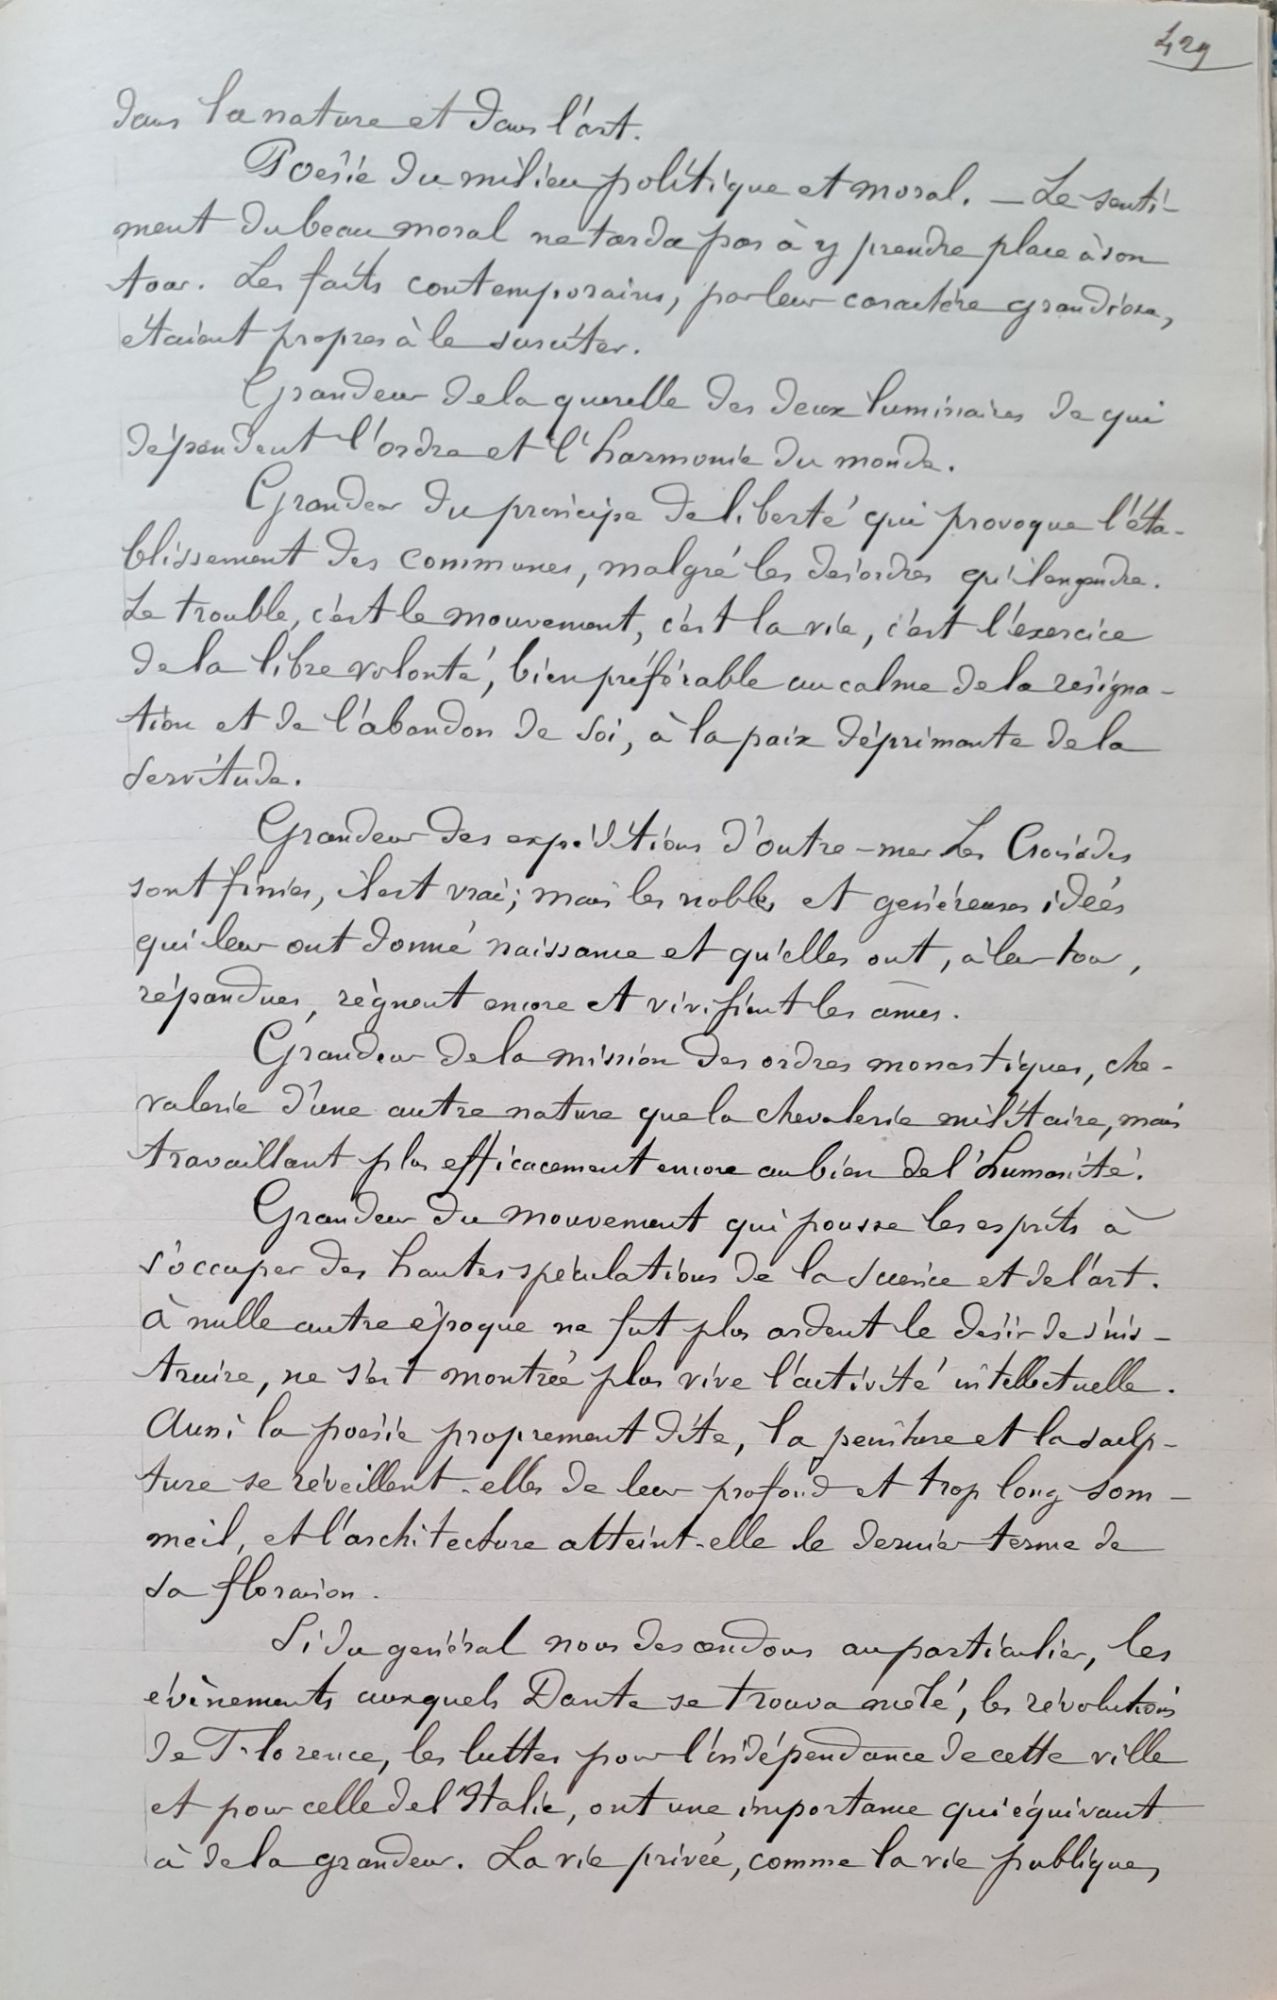 429
dans la nature et dans l'art.
Poésie du milieu politique et moral. — Le senti-
ment du beau moral ne tarda pas à y prendre place à son
tour. Les faits contemporains, par leur caractère grandiose,
étaient propres à le susciter.
Grandeur de la querelle des deux luminaires de qui
dépendent l'ordre et l'harmonie du monde.
Grandeur du principe de liberté qui provoque l'éta-
blissement des communes, malgré les désordres qu'il engendre.
Le trouble, c'est le mouvement, c'est la vie, c'est l'exercice
de la libre volonté, bien préférable au calme de la résigna-
tion et de l'abandon de soi, à la paix déprimante de la
servitude.
Grandeur des expéditions d'outre-mer. Les Croisades
sont finies, il est vrai; mais les nobles et généreuses idées
qui leur ont donné naissance et qu'elles ont, à leur tour,
répandues, règnent encore et vivifient les âmes.
Grandeur de la mission des ordres monastiques, che-
valerie d'une autre nature que la chevalerie militaire, mais
travaillant plus efficacement encore au bien de l'humanité.
Grandeur du mouvement qui pousse les esprits à
s'occuper des hautes spéculations de la science et de l'art.
À nulle autre époque ne fut plus ardent le désir de s'ins-
truire, ne s'est montrée plus vive l'activité intellectuelle.
Aussi la poésie proprement dite, la peinture et la sculp-
ture se réveillent-elles de leur profond et trop long som-
meil, et l'architecture atteint-elle le dernier terme de
sa floraison.
Si du général nous descendons au particulier, les
évènements auxquels Dante se trouva mêlé, les révolutions
de Florence, les luttes pour l'indépendance de cette ville
et pour celle de l'Italie, ont une importance qui équivaut
à de la grandeur. La vie privée, comme la vie publique,